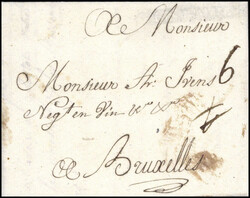 A Monsieur
Monsieur Fr. Ivens 6
Negt en Vin &ca &ca
A Bruxelles